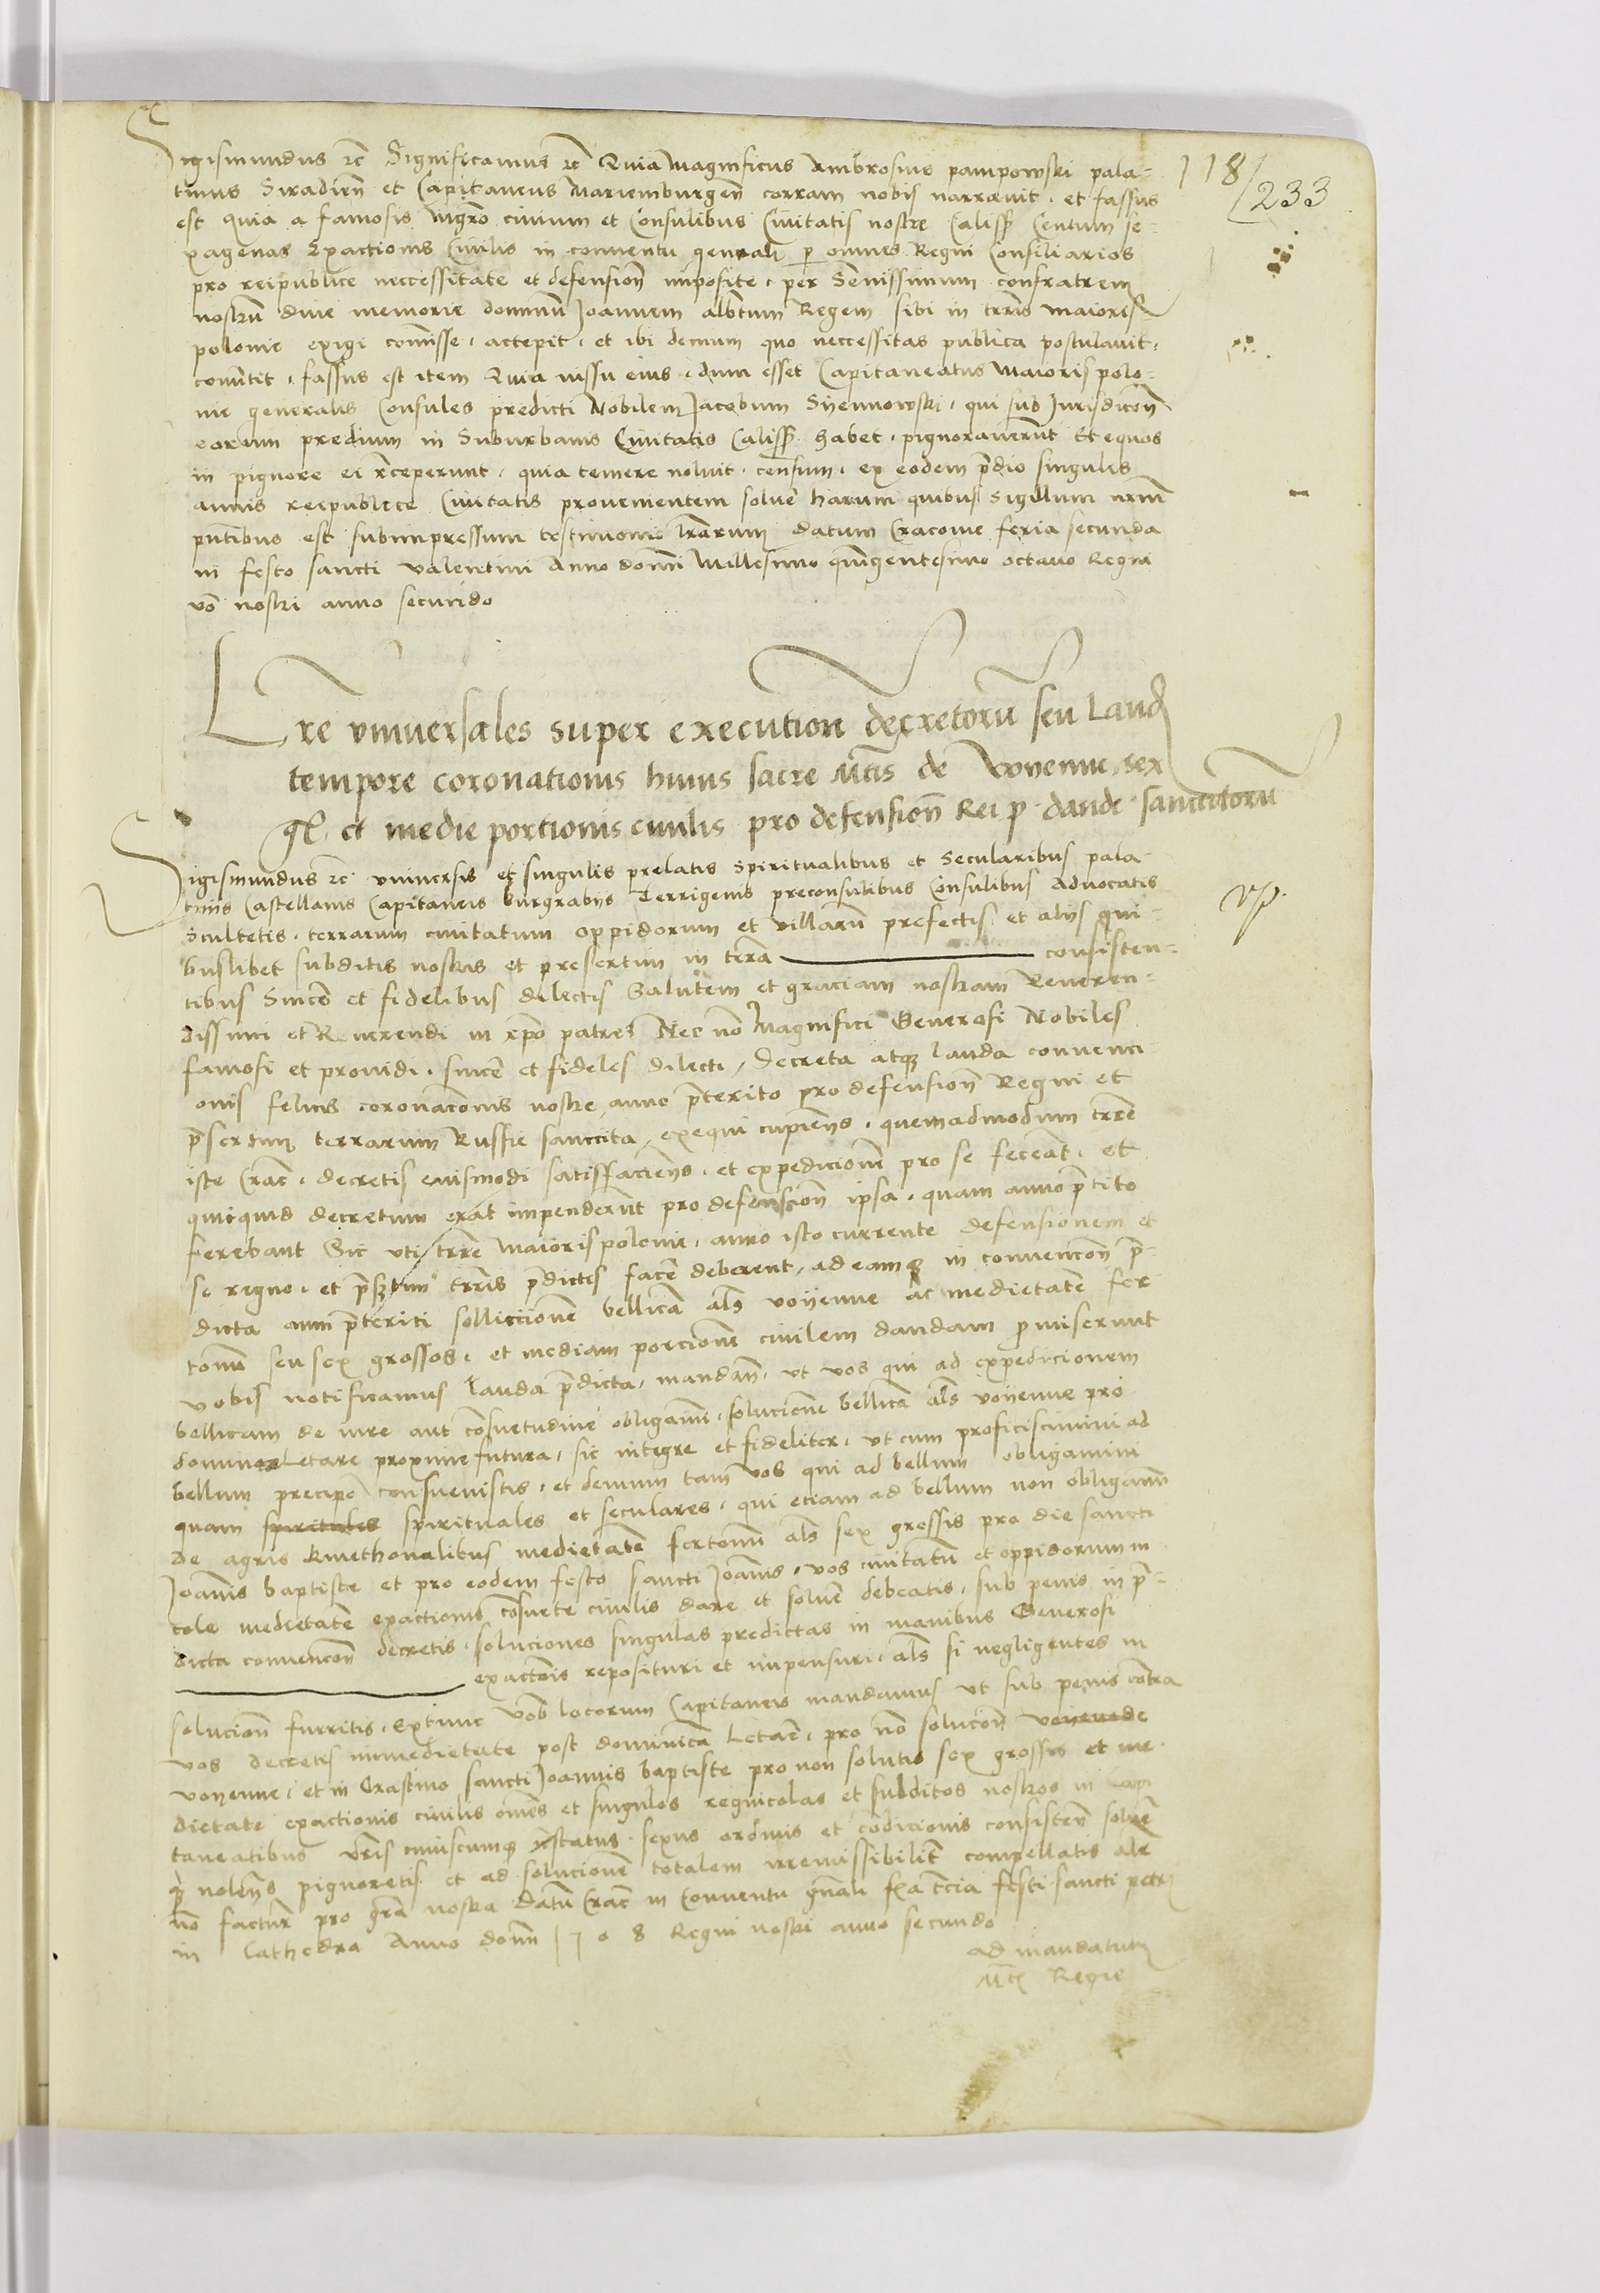 Sigismundus etc Significamus etc Quia Magnificus Ambrosius pampowski pala-
tinus Siradien et Capitaneus Mariemburgen corram nobis narravit. et fassus
est quia a famosis mgro civium et Consulibus Civitatis nostre Caliss Centum se-
xagenas Exactionis Civilis in conventu generali p omnes Regni Consiliarios
pro reipublice neccessitate et defension imposite. per Senissimum confratrem
nostru dive memorie dominu Joannem albtum Regem sibi in terris maioris
polonie exigi comisse. accepit. et ibi demum quo neccessitas publica postulavit.
convertit. fassus est item Quia iussu eius. dum esset Capitaneatus Maioris polo-
nie generalis Consules predicti Nobilem Jacobum Syennowski. qui sub Jurisdicion
eorum predium in Suburbanis Civitatis Caliss habet. pignoraverunt Et equos
in pignore ei receperunt. quia temere noluit. censum. ex eodem pdio singulis
annis reipublice Civitatis provenientem solve harum quibus Sigillum nrm
pntibus est subimpressum testimonio lrarum datum Cracovie feria secunda
in festo sancti valentini Anno domi Millesimo quingentesimo octavo Regni
vo nostri anno secundo
118/
233
Lre universales super execution decretoru seu Laud
tempore coronationis huius sacre Mtis de Woyenne sex
gl et medie portionis civilis pro defension Rei p dande sanccitoru
Sigismundus etc universis et singulis prelatis Spiritualibus et Secularibus pala
tinis Castellanis Capitaneis burgrabys Terrigenis preconsulibus Consulibus Advocatis
Scultetis. terrarum civitatum oppidorum et villaru prefectis et alys qui-
buslibet subditis nostris et presertim in terra consisten-
tibus Since et fidelibus dilectis Salutem et graciam nostram Reveren-
dissimi et Reverendi in xpo patres Nec no Magnifici Generosi Nobiles
famosi et providi. since et fideles dilecti, Decreta atq lauda conventi
onis felicis coronaconis nostre anno pterito pro defension Regni et
psertim terrarum Russie sanccita exequi cupiens. quemadmodum terre
iste Crac. decretis eiusmodi satisfaciens. et expedicionem pro se feceant. et
quicquid decretum erat impenderut pro defension ipsa. quam anno ptito
ferebant Sic uti terre Maioris polonie. anno isto currente defensionem et
se regno. et psertim terris pdictis face deberent, ad eamq in convencon p-
dicta anni pteriti sollicionem bellica als voyenne ac medietate fer
tonu seu sex grossos. et mediam porcione civilem dandam pmiserunt
vobis notificamus lauda pdicta, mandan. ut vos qui ad expedicionem
bellicam de iure aut consuetudine obligami. solucione bellica als voyenne pro
dominica Letare proxime futura, sic integre et fideliter, ut cum proficiscimini ad
bellum precipe consuevistis. et demum tam vos qui ad bellum obligamini
quam spirituales spirituales et seculares. qui etiam ad bellum non obligamin
de agris kmethonalibus medietate fertonu als sex grossis pro die sancti
Joannis baptiste et pro eodem festo sancti Joannis. vos civitatu et oppidorum in
cole medietate exactionis consuete civilis dare et solve debeatis. sub penis in p-
dicta convencon decretis. soluciones singulas predictas in manibus Generosi
exactoris reposituri et impensuri. als si negligentes in
solucion fueritis. Extunc vob locorum Capitaneis mandamus ut sub penis contra
vos decretis immedietate post dominica Letare. pro no solucon
voyenne. et in Crastino sancti Joannis baptiste pro non solutis sex grossis et me-
dietate exactionis civilis omes et singulos regnicolas et subditos nostros in capi
taneatibus vris cuiuscumq status. sexus ordinis et codicionis consisten solve
q nolens pignoretis. et ad solucione totalem irremissibilit compellatis ale
no factur pro gra nostra Datu Crac in Conventu gnali fia tcia festi sancti petri
in Cathedra Anno domi 1508 Regni nostri anno secundo
ad mandatum
Mtis Regie